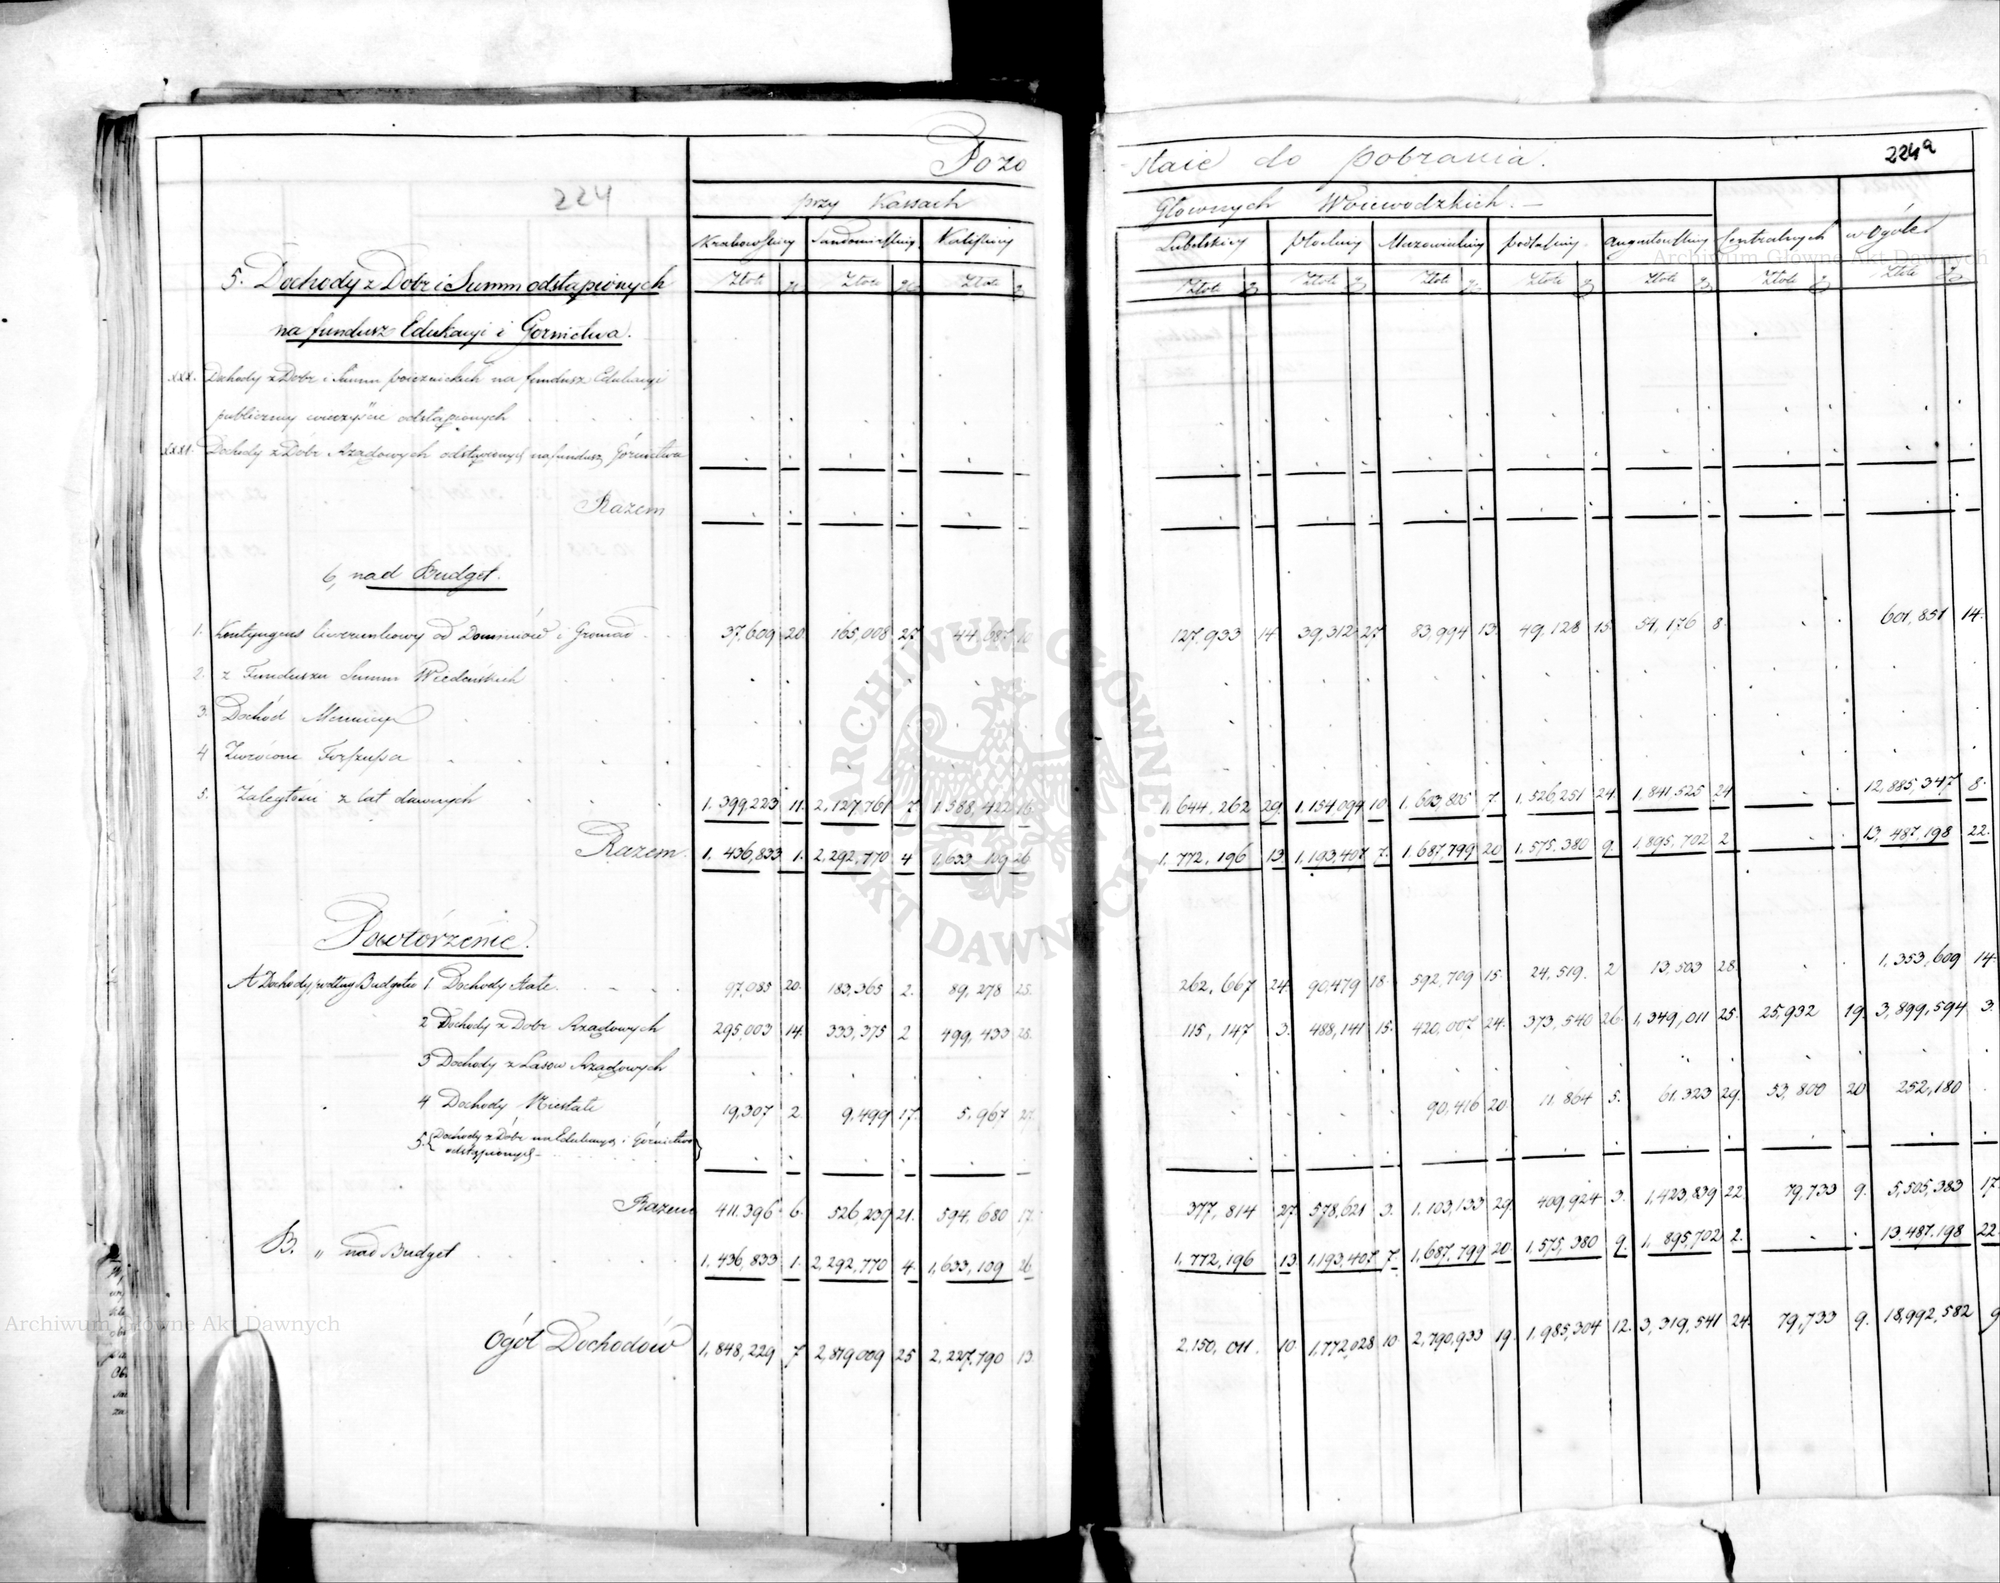 Pozo staie do pobrania. 224a
224
przy Kassach Głownych Woiewodzkich.
Krakowskiey Sandomirskiey Kaliskiey Lubelskiey Płockiey Mazowieckiey Podlaskiey Augustowskiey Centralnych w Ogóle
Złote g Złote g Złote g Złote g Złote g Złote g Złote g Złote g Złote g Złote g
5. Dochody z Dobr i Summ odstąpionych
na fundusz Edukacyi i Gornictwa.
XXX. Dochody z Dobr i Summ poiezuickich na fundusz Edukacyi
publiczney wieczyście odstąpionych
XXXI. Dochody z Dobr Rządowych odstąpionych na fundusz Górnictwa
Razem
6, nad Budget.
1. Kontyngens liwerunkowy od Dominiów i Gromad 37,609 20. 165,008 27 44,687 10 127,933 14 39,312 27 83,994 13. 49,128 15 54,176 8. 601,851 14.
2. z Funduszu Summ Wiedeńskich
3. Dochód Mennicy
4 Zwrócone Forszusa
5. Zaległości z lat dawnych 1,399,223 11. 2,127,761 7 1,588,422 16 1,644,262 29. 1,154,094 10 1,603,805 7. 1,526,251 24 1,841,525 24 12,885,347 8.
Razem. 1,436,833 1. 2,292,770 4 1,633,109 26 1,772,196 13. 1,193,407 7. 1,687,799 20 1,575,380 9. 1,895,702 2 13,487,198 22.
Powtórzenie.
A Dochody podług Budgetu 1 Dochody stałe. 97,085 20. 183,365 2. 89,278 25. 262,667 24. 90,479 18. 592,709 15. 24,519. 2 13,503 28. 1,353,609 14.
2 Dochody z Dobr Rządowych 295,003 14. 333,375 2 499,433 28. 115,147 3. 488,141 15. 420,007 24. 373,540 26. 1,349,011 25. 25,932 19. 3,899,594 3.
3 Dochody z Lasow Rządowych
4 Dochody Niestałe 19,307 2. 9,499 17. 5,967 27. 90,416 20. 11,864 5. 61,323 29. 53,800 20 252,180
5. Dochody z Dóbr na Edukacyę i Górnictwo
odstąpionych
Razem 411,396 6. 526,239 21. 594,680 17. 377,814 27 578,621 3. 1,103,133 29. 409,924 3. 1,423,839 22. 79,733 9. 5,505,383 17.
B. „ nad Budget 1,436,833 1. 2,292,770 4. 1,633,109 26 1,772,196 13. 1,193,407 7. 1,687,799 20. 1,575,380 9. 1,895,702 2. 13,487,198 22.
Ogół Dochodów 1,848,229 7 2,819,009 25 2,227,790 13. 2,150,011. 10. 1,772,028 10. 2,790,933 19. 1,985,304 12. 3,319,541 24. 79,733 9. 18,992,582 9
ARCHIWUM GŁÓWNE AKT DAWNYCH
Archiwum Główne Akt Dawnych
Archiwum Główne Akt Dawnych